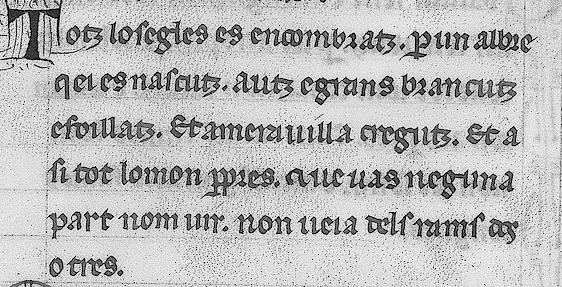 Totz lo segles es encombratz. ꝑ un albre
qei es nascutz. autz e grans brancutz
e foillatz. Et a meravilla cregutz. Et a
si tot lo mon ꝑpres. Q̃ve vas neguna
part nom vir. non veia dels rams dos
o tres.